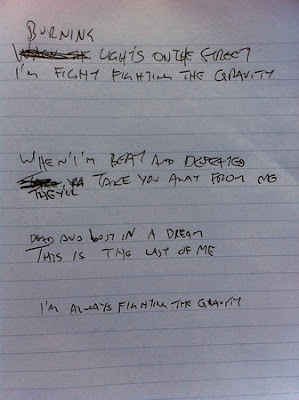 BURNING
LIGHTS ON THE STREET
I'M FIGHT FIGHTING THE GRAVITY
WHEN I'M BEAT AND DEFEATED
TAKE YOU AWAY FROM ME
THEY'LL
DEAD AND LOST IN A DREAM
THIS IS THE LAST OF ME
I'M ALWAYS FIGHTING THE GRAVITY